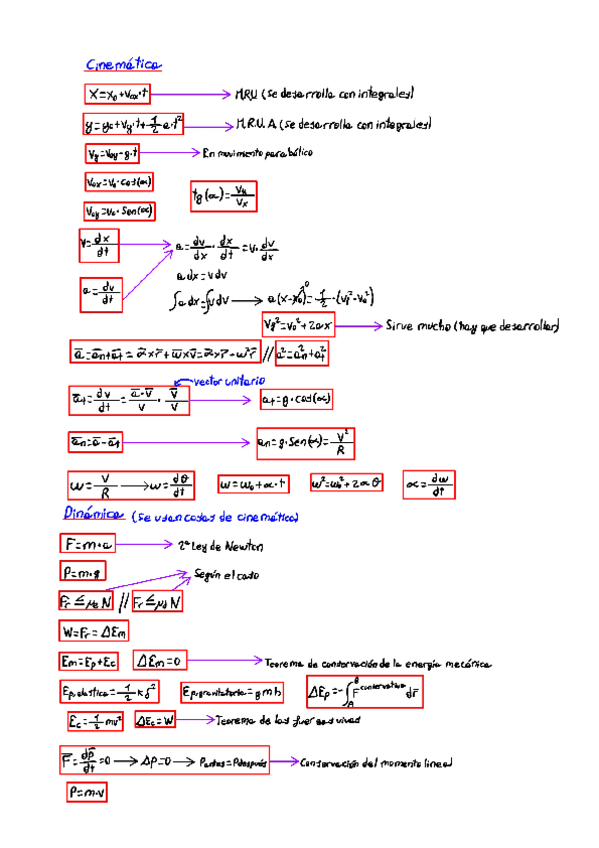 Cinemática
X=x₀+v₀ₓ·t → M.R.U (Se desarrolla con integrales)
y=y₀+v_y·t+1/2 a·t² → M.R.U.A. (Se desarrolla con integrales)
v_y=v₀y-g·t → En movimiento parabólico
v₀ₓ=v₀·cos(α)
v₀y=v₀·Sen(α)
tg(α)=v_y/vₓ
v=dx/dt
a=dv/dt
a=dv/dx·dx/dt=v·dv/dx
a dx=v dv
∫a dx=∫v dv → a(x-x₀)=1/2·(v_f²-v₀²)
v_f²=v₀²+2ax → Sirve mucho (hay que desarrollar)
a̅=a̅n+a̅t = α̅×r̅+w̅×v̅=α̅×r̅-w²r̅ // a²=an²+at²
vector unitario
a̅t=dv/dt=a̅·v̅/v·v̅/v → at=g·cos(α)
a̅n=a̅-a̅t → an=g·Sen(α)=v²/R
w=v/R → w=dθ/dt
w=w₀+α·t
w²=w₀²+2αθ
α=dw/dt
Dinámica (Se usan cosas de cinemática)
F=m·a → 2ª Ley de Newton
P=m·g
Según el caso
Fr≤μeN // Fr≤μdN
W=Fr=ΔEm
Em=Ep+Ec ΔEm=0 → Teorema de conservación de la energía mecánica
Ep.elastica=1/2 kδ² Ep.gravitatoria=gmh ΔEp=-∫_A^B F^conservativa dr̅
Ec=1/2 mv² ΔEc=W → Teorema de las fuerzas vivas
F̅=dp̅/dt=0 → ΔP=0 → Pantes=Pdespués → Conservación del momento lineal
P=m·v